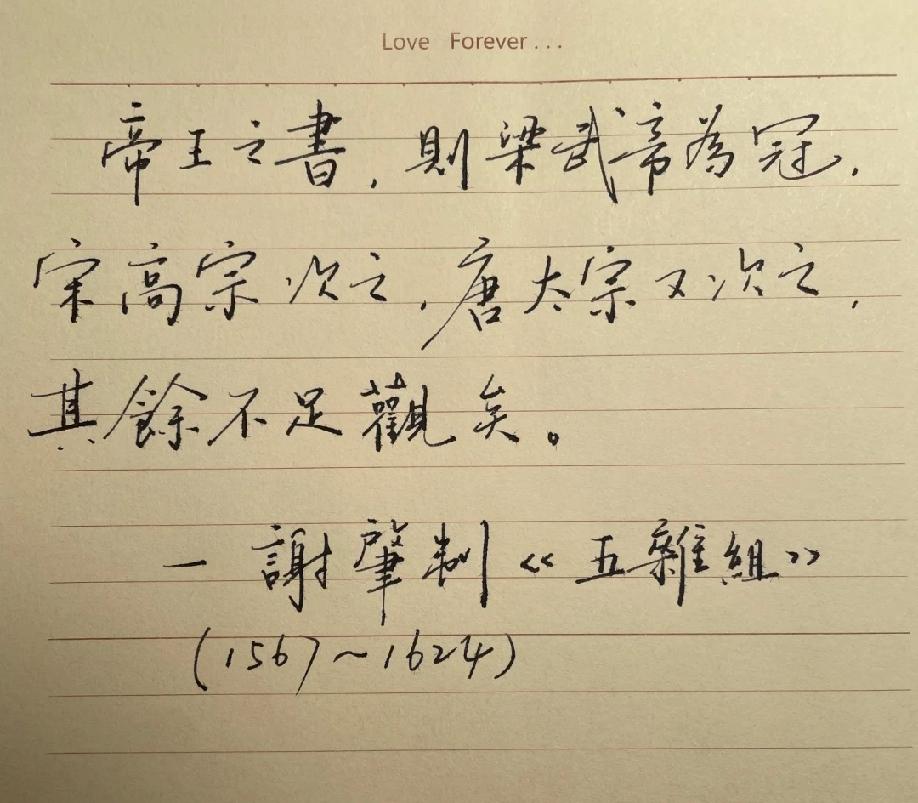 Love Forever...
帝王之書，則梁武帝為冠，
宋高宗次之，唐太宗又次之，
其餘不足觀矣。
—謝肇制《五雜組》
(1567~1624)